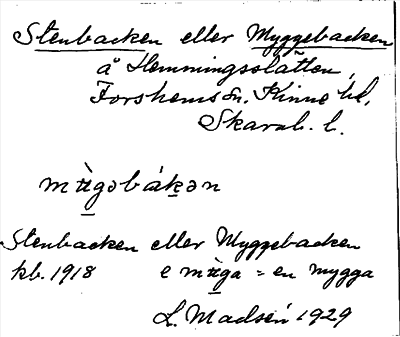 Stenbacken eller Myggebacken
å Hemmingsslätten,
Forshems sn. Kinne hd,
Skarab. l.
mỳgəbákən
Stenbacken eller Myggebacken
kb. 1918 e mỳga = en mygga
L. Madsén 1929